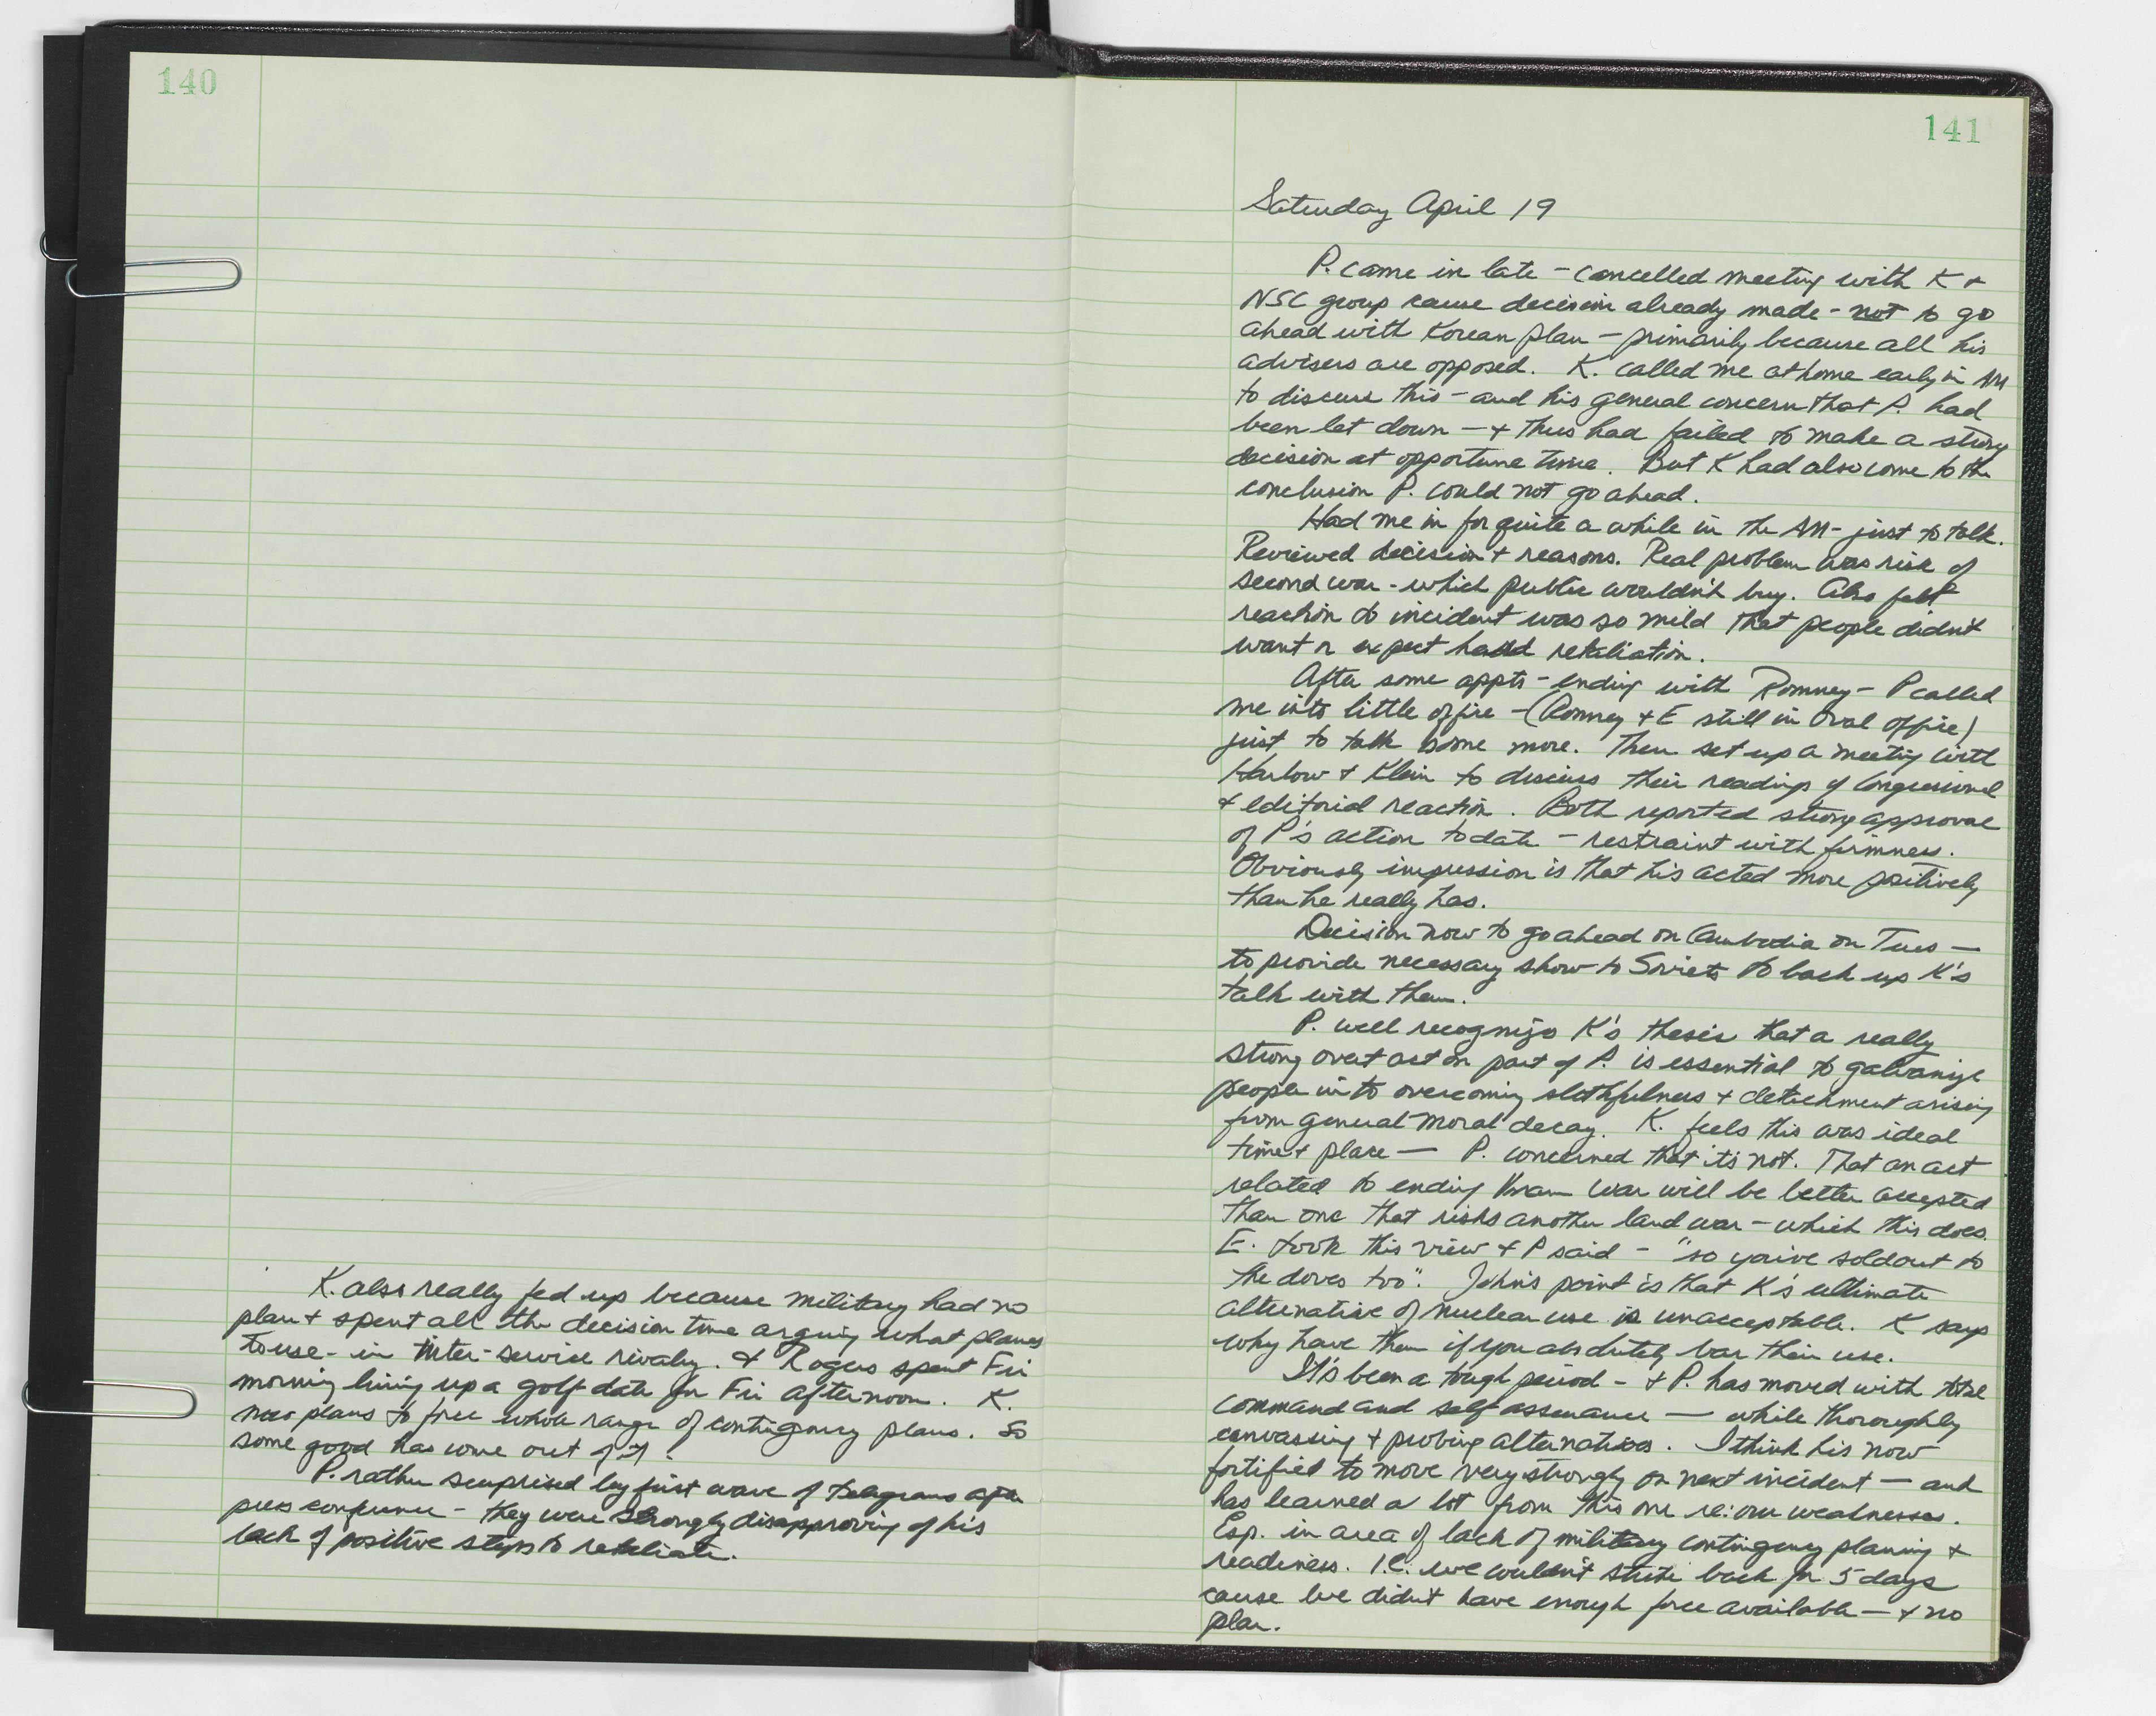 140
K. also really fed up because military had no
plan & spent all the decision time arguing what planes
to use - in inter-service rivalry. & Rogers spent Fri
morning lining up a golf date for Fri afternoon. K.
now plans to free whole range of contingency plans. So
some good has come out of it.
P. rather surprised by first wave of telegrams after
press conference - they were strongly disapproving of his
lack of positive steps to retaliate.
141
Saturday April 19
P. came in late - cancelled meeting with K &
NSC group cause decision already made - not to go
ahead with Korean plan - primarily because all his
advisers are opposed. K. called me at home early in AM
to discuss this - and his general concern that P. had
been let down - & thus had failed to make a strong
decision at opportune time. But K had also come to the
conclusion P. could not go ahead.
Had me in for quite a while in the AM - just to talk.
Reviewed decision & reasons. Real problem was risk of
second war - which public wouldn't buy. Also felt
reaction to incident was so mild that people didn't
want or expect hard retaliation.
After some appts - ending with Romney - P called
me into little office - (Romney & E still in Oval office)
just to talk some more. Then set up a meeting with
Harlow & Klein to discuss their readings of Congressional
& editorial reaction. Both reported strong approval
of P's action to date - restraint with firmness.
Obviously impression is that his acted more positively
than he really has.
Decision now to go ahead on Cambodia on Tues -
to provide necessary show to Soviets to back up K's
talk with them.
P. well recognizes K's thesis that a really
strong overt act on part of P. is essential to galvanize
people into overcoming slothfulness & detachment arising
from general moral decay. K. feels this was ideal
time & place - P. concerned that it's not. That an act
related to ending Vnam war will be better accepted
than one that risks another land war - which this does.
E. took this view & P said - "so you've sold out to
the doves too". John's point is that K's ultimate
alternative of nuclear use is unacceptable. K says
why have them if you absolutely bar their use.
It's been a tough period - & P. has moved with total
command and self assurance - while thoroughly
canvassing & probing alternatives. I think his now
fortified to move very strongly on next incident - and
has learned a lot from this one re: our weaknesses.
Esp. in area of lack of military contingency planing &
readiness. I.e. we couldn't strike back for 5 days
cause we didn't have enough force available - & no
plan.